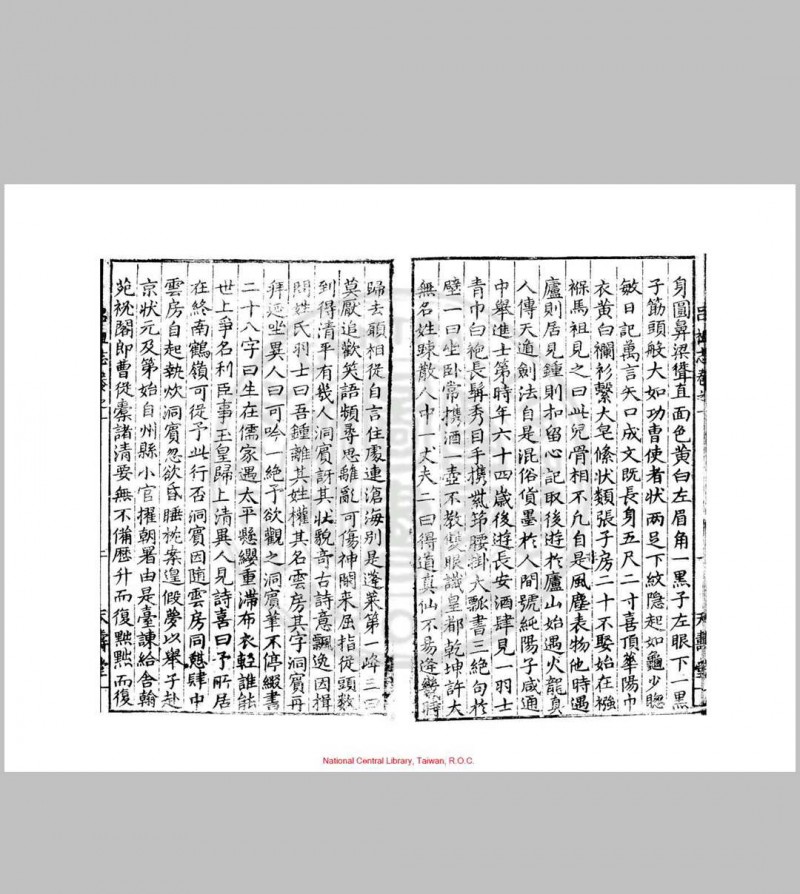 身圓鼻梁聳直面色黃白左眉角一黑子左眼下一黑
子筋頭般大如功曹使者状兩足下紋隱起如龜少聰
敏日記萬言矢口成文既長身五尺二寸喜頂華陽巾
衣黃白襴衫繫大皂絛状類張子房二十不娶始在襁
褓馬祖見之曰此兒骨相不凡自是風塵表物他時遇
廬則居見鍾則扣留心記取後遊於廬山始遇火龍真
人傳天遁劍法自是混俗貨墨於人間號純陽子咸通
中舉進士第時年六十四歲後遊長安酒肆見一羽士
青巾白袍長髯秀目手携紫笻腰掛大瓢書三絶句於
壁一曰坐卧常携酒一壺不教雙眼識皇都乾坤許大
無名姓踈散人中一丈夫二曰得道真仙不易逢幾時
歸去願相從自言住處連滄海别是蓬萊第一峰三曰
莫厭追歡笑語頻尋思離亂可傷神閑來屈指從頭數
到得清平有幾人洞賓訝其状貌竒古詩意飄逸因揖
問姓氏羽士曰吾鍾離其姓權其名雲房其字洞賓再
拜延坐異人曰可吟一絶予欲觀之洞賓筆不停綴書
二十八字曰生在儒家遇太平懸纓重滯布衣輕誰能
世上爭名利臣事玉皇歸上清異人見詩喜曰予所居
在終南鶴嶺可從予此行否洞賓因隨雲房同憩肆中
雲房自起執炊洞賓忽欲昏睡枕案遑假夢以舉子赴
京状元及第始自州縣小官擢朝署由是臺諫給舍翰
苑祕閣郎曹從橐諸清要無不備歷升而復黜黜而復
天壽堂
National Central Library, Taiwan, R.O.C.